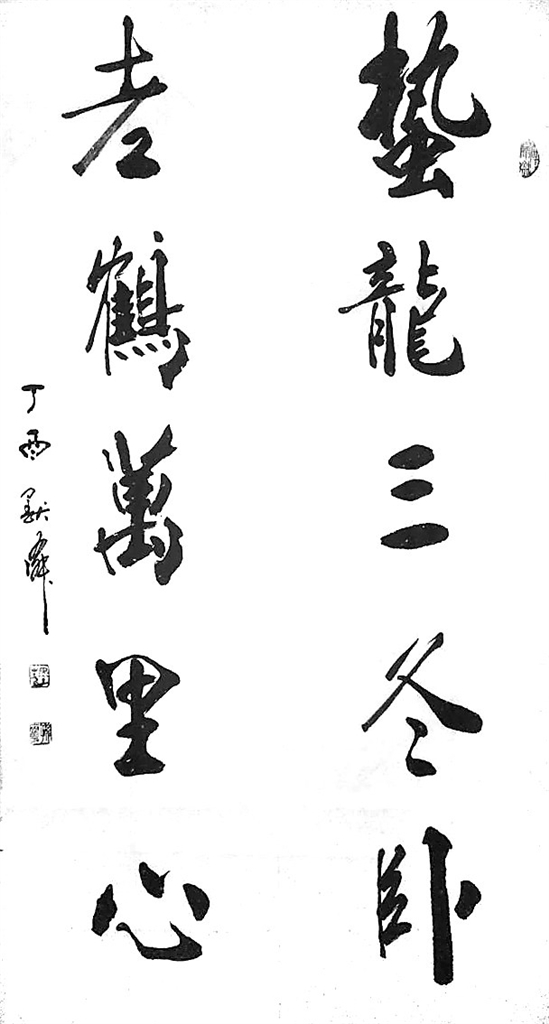 蟄龍三冬卧
老鶴萬里心
丁酉